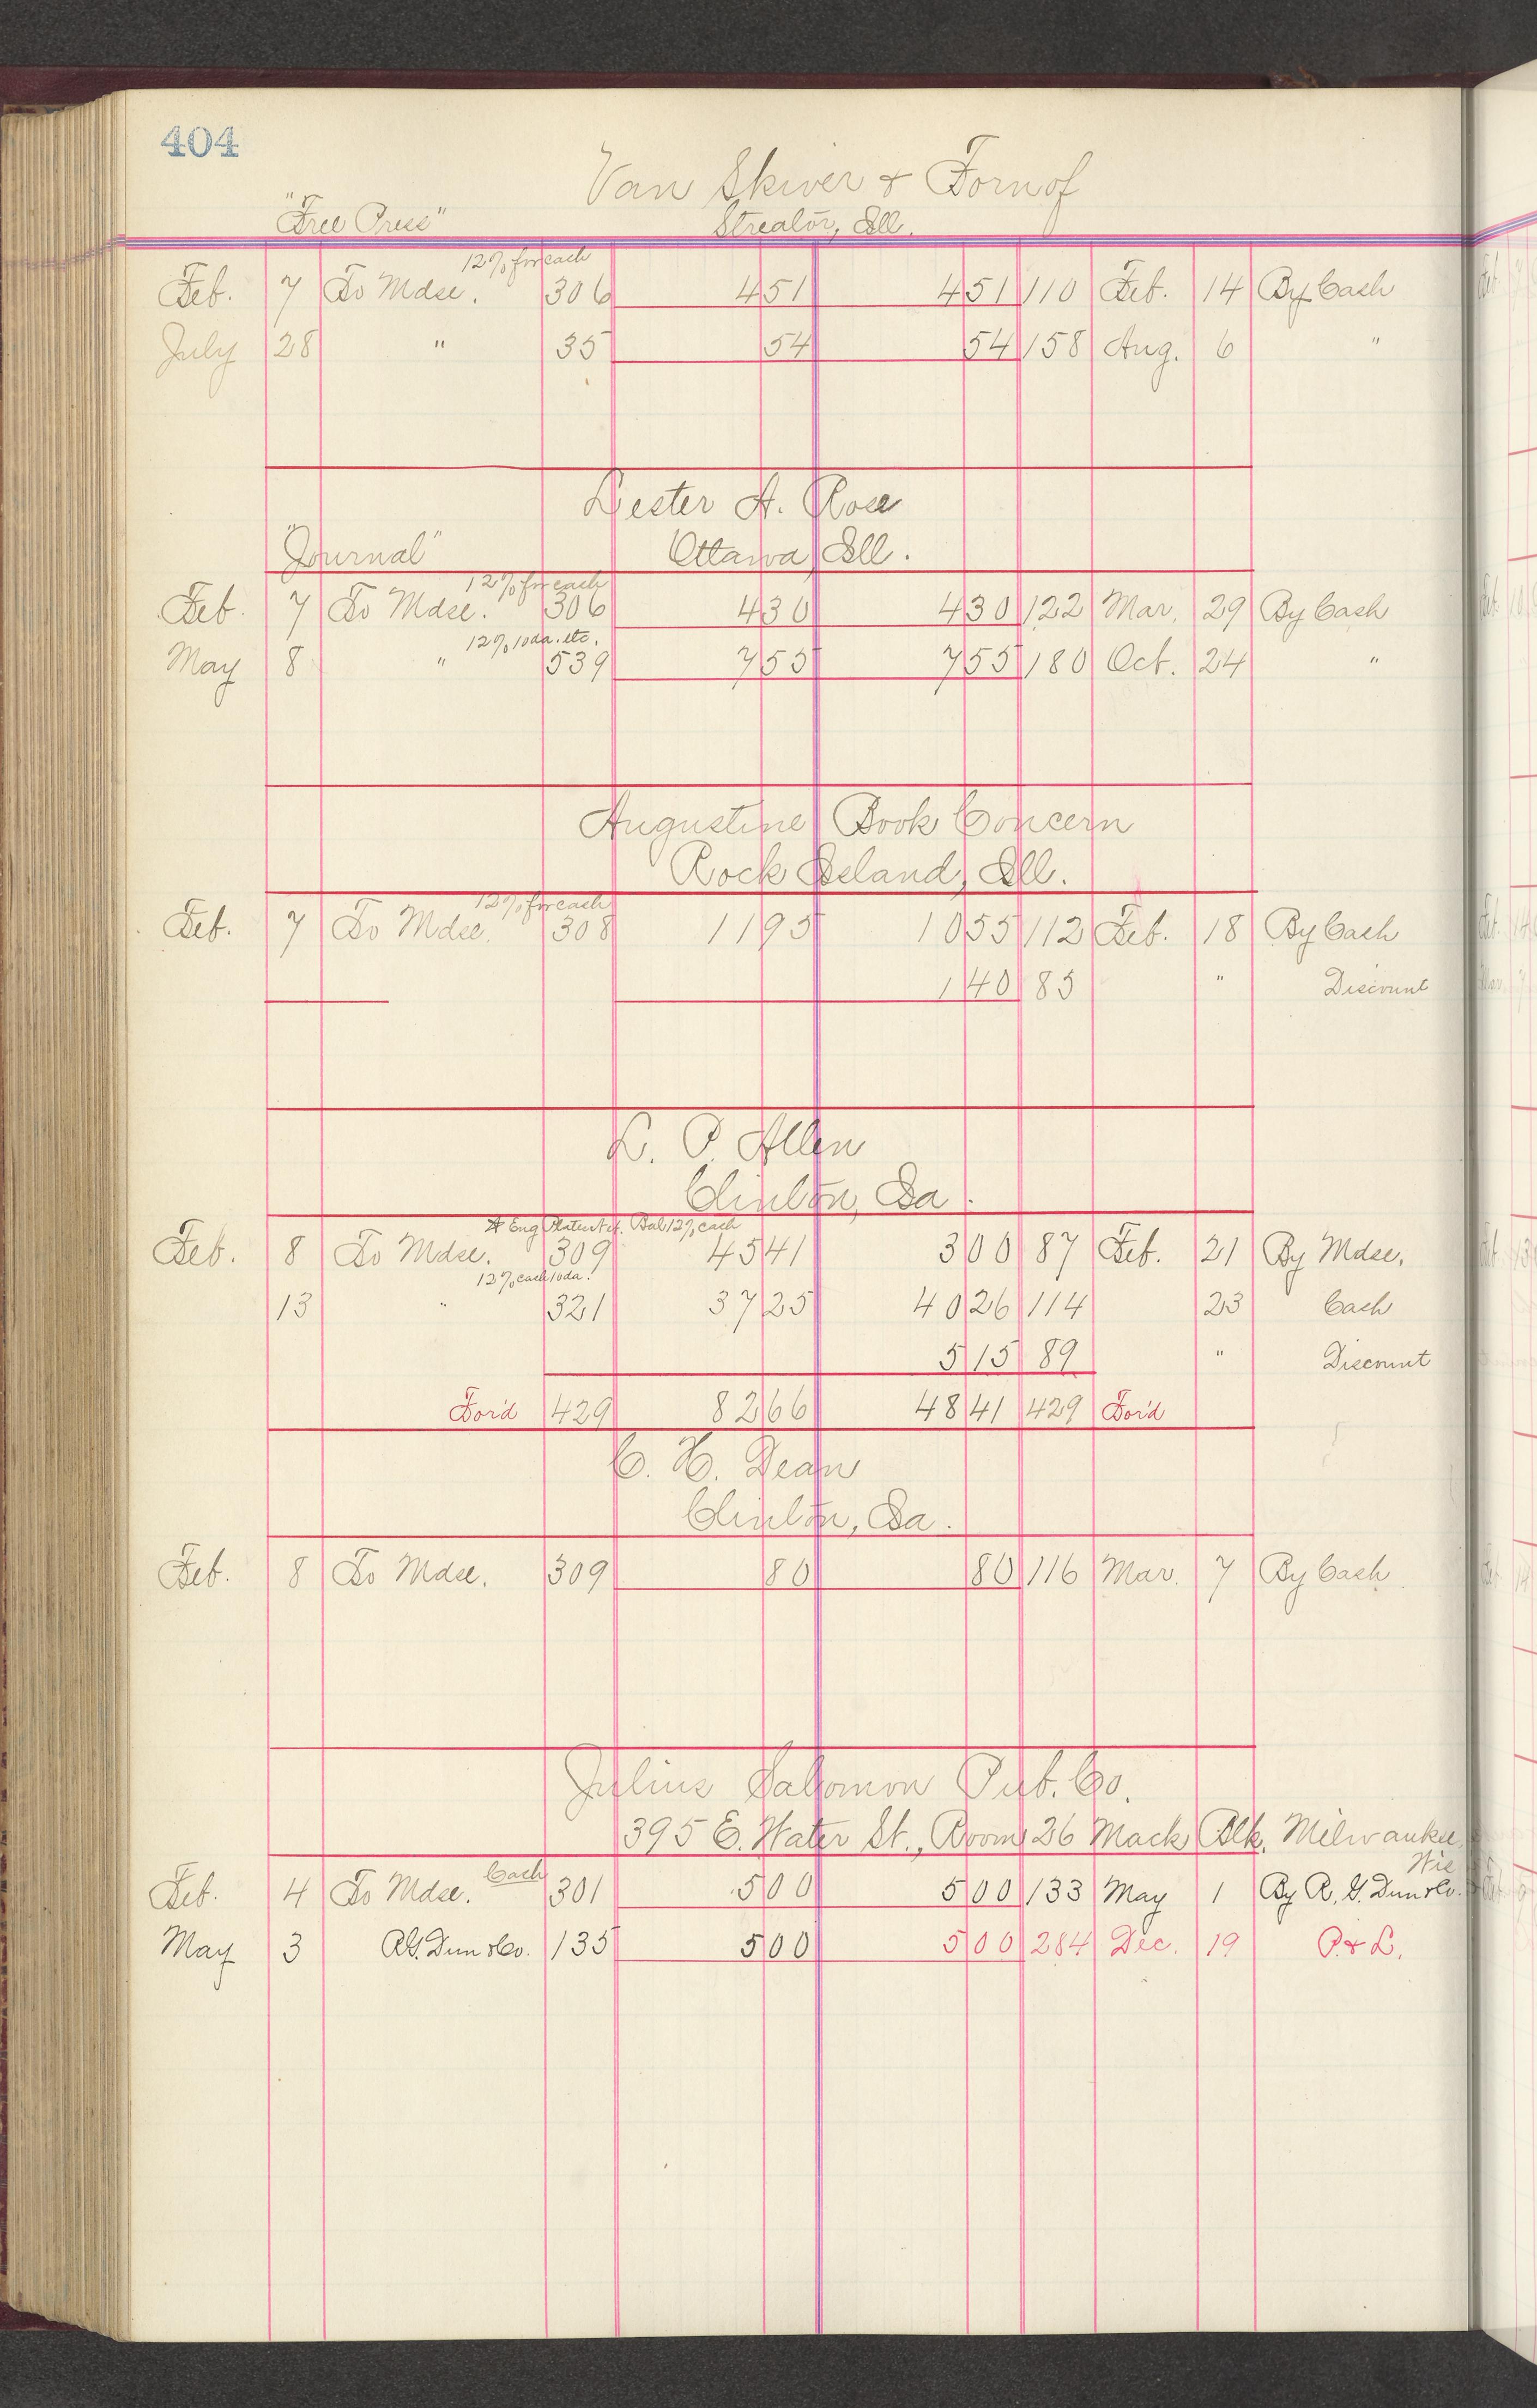 404
Van Skiver & Fornof
"Free Press" Streator, Ill.
12% for each
Feb. 7 To Mdse. 306 4 51 4 51 110 Feb. 14 By Cash
July 28 " 35 54 54 158 Aug. 6 "
Lester A. Rose
"Journal" Ottawa, Ill.
12% for each
Feb. 7 To Mdse. 306 4 30 4 30 122 Mar. 29 By Cash
12% 10 da. etc.
May 8 " 539 7 55 7 55 180 Oct. 24 "
Augustine Book Concern
Rock Island, Ill.
12% for each
Feb. 7 To Mdse. 308 11 95 10 55 112 Feb. 18 By Cash
1 40 85 " Discount
L. P. Allen
Clinton, Ia.
Eng. Bal 12% cash
Feb. 8 To Mdse. 309 45 41 3 00 87 Feb. 21 By Mdse.
12% cash 10 da.
13 " 321 37 25 40 26 114 23 Cash
5 15 89 " Discount
For'd 429 82 66 48 41 429 For'd
C. H. Dean
Clinton, Ia.
Feb. 8 To Mdse. 309 80 80 116 Mar. 7 By Cash
Julius Salomon Pub. Co.
395 E. Water St., Room 26 Mack Blk. Milwaukee,
Wis
Cash
Feb. 4 To Mdse. 301 5 00 5 00 133 May 1 By R. G. Dun & Co.
May 3 R.G. Dun & Co. 135 5 00 5 00 284 Dec. 19 P. & L.